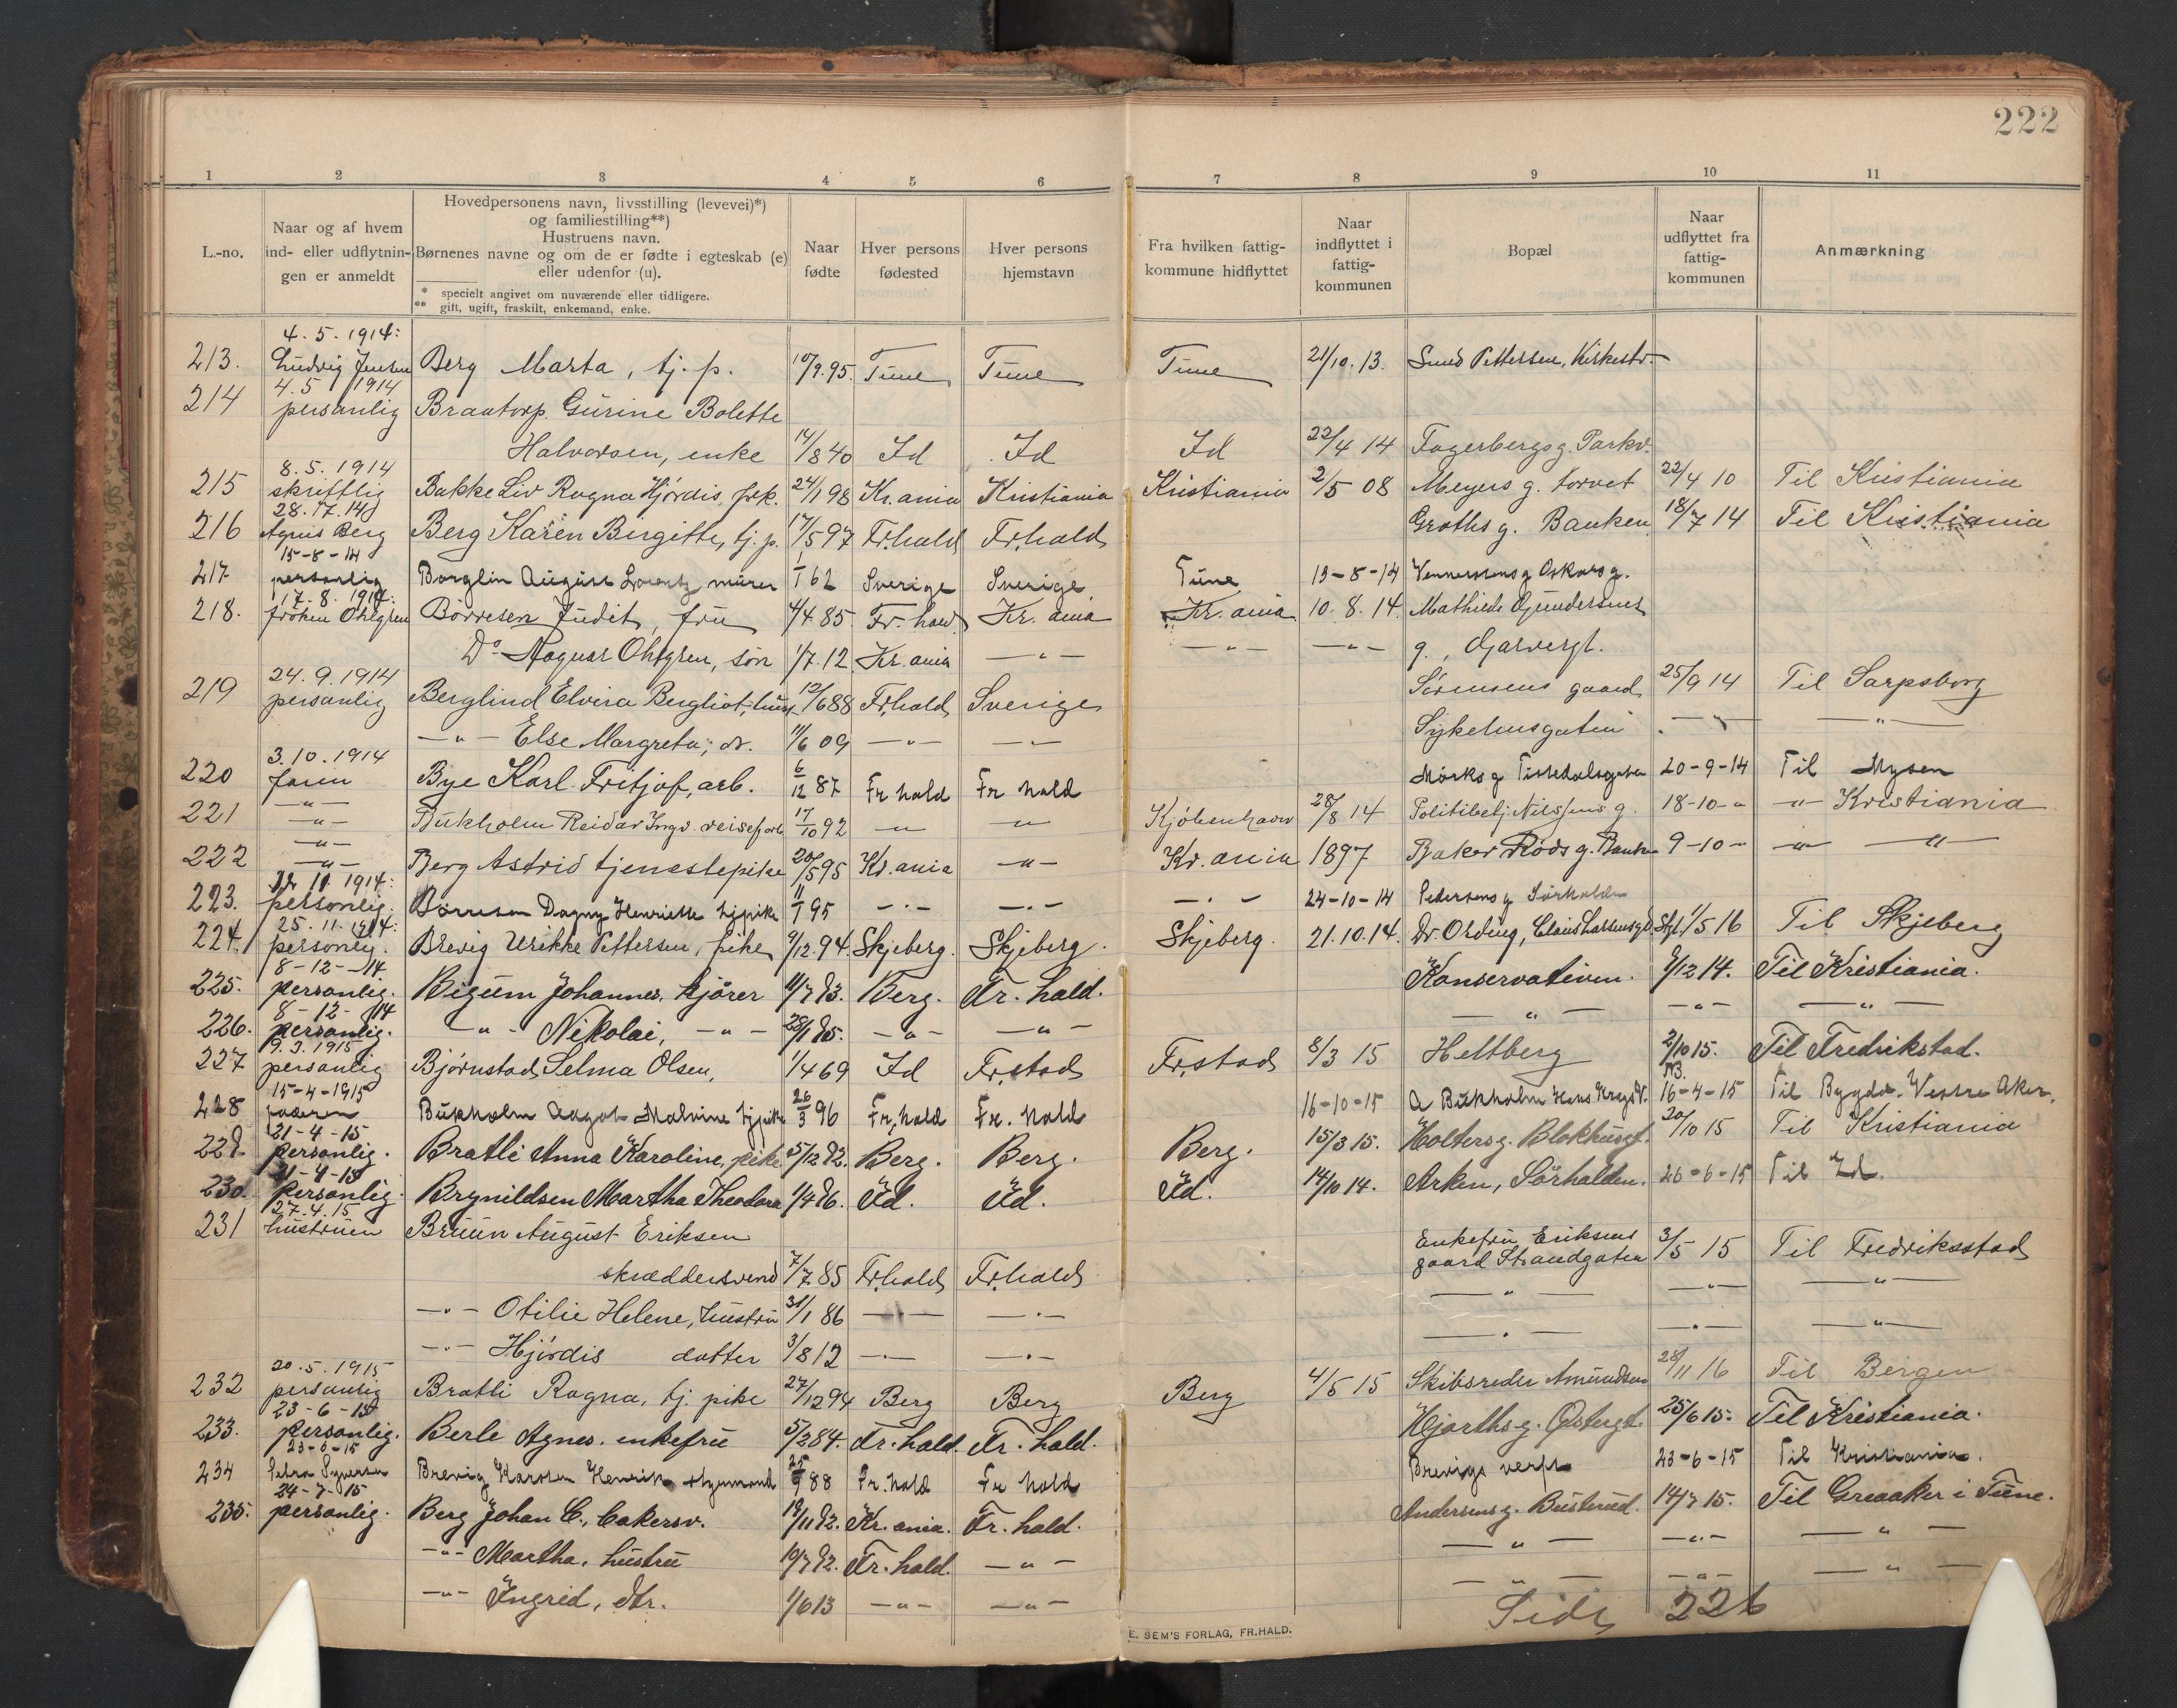 222
1 2 3 4 5 6 7 8 9 10 11
L.-no.
Naar og af hvem
ind- eller udflytnin-
gen er anmeldt
Hovedpersonens navn, livsstilling (levevei)*)
og familiestilling**)
Hustruens navn.
Børnenes navne og om de er fødte i egteskab (e)
eller udenfor (u).
* specielt angivet om nuværende eller tidligere.
** gift, ugift, fraskilt, enkemand, enke.
Naar
fødte
Hver persons
fødested
Hver persons
hjemstavn
Fra hvilken fattig-
kommune hidflyttet
Naar
indflyttet i
fattig-
kommunen
Bopæl
Naar
udflyttet fra
fattig-
kommunen
Anmærkning
4. 5. 1914:
213. Ludvig Jensen Berg Marta, tj. p. 10/9.95. Tune Tune Tune 21/10.13. Smed Pettersen, Kirkestr.
4. 5 1914
214 personlig Braatorp Gurine Bolette
Halvorsen, enke 14/8 40 Id Id Id 22/4 14 Fagerbergsg. Parkv.
8. 5. 1914
215 skriftlig Bakke Liv Ragna Hjørdis, frk. 24/1 98 Kr.ania Kristiania Kristiania 2/5 08 Meyers g. torvet 22/4 10 Til Kristiania
28. 7. 14
216 Agnes Berg Berg Karen Birgitte, tj. p. 17/5 97 Fr.hald Fr.hald Groths g. Banken 18/7 14 Til Kristiania
15-8-14
217 personlig Borglin August Lorentz murer 1/1 62 Sverige Sverige Tune 13-8-14 Vennersens g Oskars g.
17. 8. 1914:
218. frøken Ohlgren Børresen Judit, fru 4/4. 85. Fr. hald Kr. ania Kr. ania 10. 8. 14. Mathilde Gundersens
Do Ragnar Ohlgren, søn 1/7. 12. Kr. ania —"— —"— —"— g., Garvergt.
24. 9. 1914
219 personlig Berglind Elvira Bergliot, hust. 12/6 88 Fr.hald Sverige Sørensens gaard 25/9 14 Til Sarpsborg
—"— Else Margreta, dr. 11/6 09 —"— —"— Sykehusgaten —"— —"—
3. 10. 1914
220 faren Bye Karl Fritjof, arb. 6/12 87 Fr hald Fr hald Mørks g Tistedalsgaten 20-9-14 Til Mysen
—"—
221 —"— Bukholm Reidar Ingv. reisefort 17/10 92 —"— —"— Kjøbenhavn 28/8 14 Politibetj. Nilssens g. 18-10-" —"— Kristiania
—"—
222 —"— Berg Astrid tjenestepike 20/5 95 Kr.ania —"— Kr.ania 1897 Baker Røds g. Banken 9-10-" —"— —"—
11 1914:
223. personlig. Børresen Dagny Henriette tjpike 11/1 95 —"— —"— —"— 24-10-14 Pedersens g Sørhalden
25. 11. 1914:
224. personlig. Brevig Ulrikke Pettersen, pike 9/12. 94. Skjeberg. Skjeberg. Skjeberg. 21. 10. 14. Dr. Ording, Claus Larsensgd. 1/5 16 Til Skjeberg
8-12-14.
225. personlig. Bigum Johannes, kjører 11/7 83. Berg. Fr. hald. Konservativen. 9/12 14. Til Kristiania.
8-12-14
226. personlig. —"— Nikolai, —"— 28/1 85. —"— —"— —"— —"— —"—
9. 3. 1915
227 personlig Bjørnstad Selma Olsen, 1/4 69 Id Fr.stad Fr.stad 8/3 15 Heltberg 2/10 15. Til Fredrikstad.
15-4-1915
228 faderen Bukholm Aagot Malvine tjpike 26/3 96 Fr. hald Fr. hald 16-10-15 A Bukholm Hans Krags V. 16-4-15 Til Bygdø. Vestre Aker.
21-4-15
229. personlig. Bratli Anna Karoline, pike 5/12 92. Berg. Berg. Berg. 15/3 15. Holtersg. Blokhusgt. 20/10 15 Til Kristiania
21-4-15
230. personlig. Brynildsen Martha Theodora 1/4 86. Id. Id. Id. 14/10 14. Arken, Sørhalden. 26-6-15 Til Id.
27. 4. 15
231 hustruen Bruun August Eriksen Enkefru Eriksens 3/5 15 Til Fredriksstad
skræddersvend 7/7 85 Fr.hald Fr.hald gaard Strandgaten
—"— Otilie Helene, hustru 31/1 86 —"— —"— —"— —"— —"—
—"— Hjørdis datter 3/8 12 —"— —"— —"— —"— —"—
20. 5. 1915
232 personlig Bratli Ragna, tj. pike 27/12 94 Berg Berg Berg 4/5 15 Skibsreder Amundsen 28/11 16 Til Bergen
23-6-15
233. personlig. Berle Agnes. enkefru 5/2 84. Fr. hald. Fr. hald. Hjorthsg. Østergt. 25/6 15. Til Kristiania.
23-6-15
234 Petra Syversen Brevig Karsten Henrik styrmand 25/9 88 Fr. hald Fr hald Brevigs verft 23-6-15 Til Kristiania.
24-7-15
235. personlig. Berg Johan C., bakersv. 18/11 82. Kr. ania. Fr. hald. Andersensg. Busterud. 14/7 15. Til Greaaker i Tune.
—"— Martha, hustru 19/7 82. Fr. hald. —"— —"— —"— —"—
—"— Ingrid, dtr. 1/6 13 —"— —"— —"— —"— —"—
Side 226
E. SEM'S FORLAG, FR.HALD.